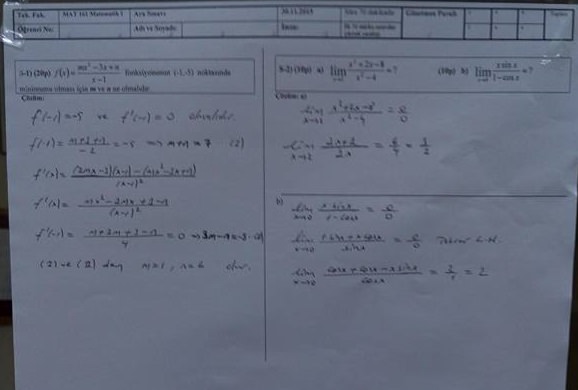 Tek. Fak. MAT 161 Matematik I Ara Sınavı 30.11.2015 Süre 70 dakikadır
Öğrenci No: Adı ve Soyadı: İmza:
S-1) (20p) f(x) = (mx² - 3x + n)/(x - 1) fonksiyonunun (-1,-5) noktasında
minimumu olması için m ve n ne olmalıdır.
Çözüm:
f(-1) = -5 ve f'(-1) = 0 olmalıdır.
f(-1) = (m+3+n)/(-2) = -5 ⇒ m+n = 7 (1)
f'(x) = ((2mx-3)(x-1) - (mx²-3x+n))/(x-1)²
f'(x) = (mx² - 2mx + 3 - n)/(x-1)²
f'(-1) = (m+2m+3-n)/4 = 0 ⇒ 3m-n = -3 (2)
(1) ve (2) den m=1, n=6 olur.
S-2) (10p) a) lim x→2 (x² + 2x - 8)/(x² - 4) = ?
(10p) b) lim x→0 (x sin x)/(1 - cos x) = ?
Çözüm: a)
lim x→2 (x²+2x-8)/(x²-4) = 0/0
lim x→2 (2x+2)/(2x) = 6/4 = 3/2
b)
lim x→0 (x sinx)/(1-cosx) = 0/0
lim x→0 (sinx + xcosx)/(sinx) = 0/0 Tekrar L-H.
lim x→0 (cosx + cosx - xsinx)/(cosx) = 2/1 = 2